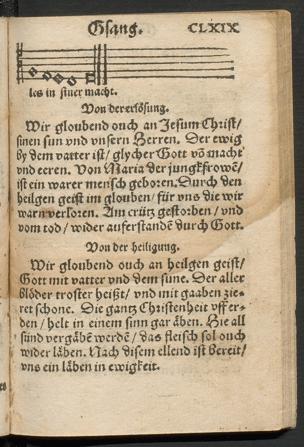 Gsang. CLXIX
les in siner macht.
Von der erlösung.
Wir gloubend ouch an Jesum Christ/
sinen sun vnd vnsern Herren. Der ewig
by dem vatter ist/ glycher Gott vō macht
vnd eeren. Von Maria der jungkfrowē/
ist ein warer mensch geboren. Durch den
heilgen geist im glouben/ für vns die wir
warn verloren. Am crütz gestorben/ vnd
vom tod/ wider auferstanden durch Gott.
Von der heiligung.
Wir gloubend ouch an heilgen geist/
Gott mit vatter vnd dem sune. Der aller
blöder troster heißt/ vnd mit gaaben zie-
ret schone. Die gantz Christenheit vff er-
den/ helt in einem sinn gar äben. Hie all
sünd vergäbē werdē/ das fleisch sol ouch
wider läben. Nach disem ellend ist bereit/
vns ein läben in ewigkeit.